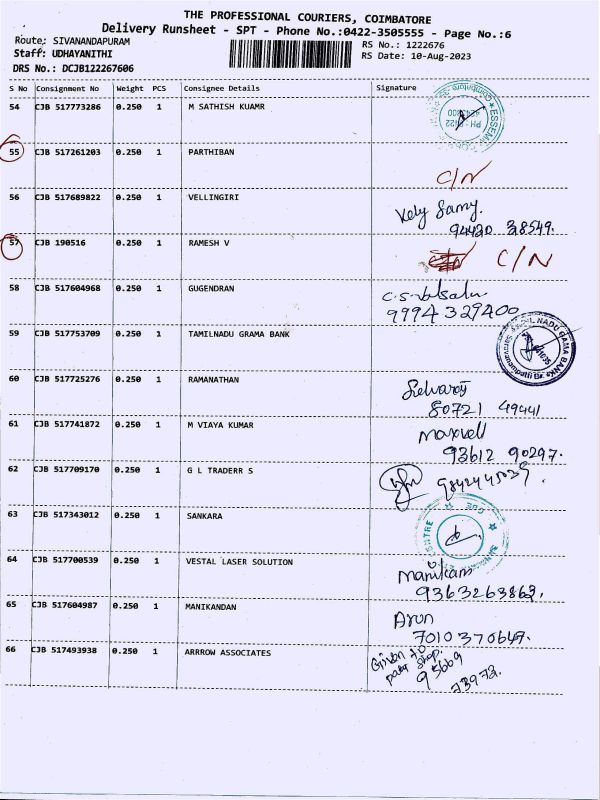 THE PROFESSIONAL COURIERS, COIMBATORE
Delivery Runsheet - SPT - Phone No.:0422-3505555 - Page No.:6
Route: SIVANANDAPURAM
RS No.: 1222676
Staff: UDHAYANITHI
RS Date: 10-Aug-2023
DRS No.: DCJB122267606
S No Consignment No Weight PCS Consignee Details Signature
54 CJB 517773286 0.250 1 M SATHISH KUAMR
55 CJB 517261203 0.250 1 PARTHIBAN
C/N
56 CJB 517689822 0.250 1 VELLINGIRI
94420 38549.
57 CJB 190516 0.250 1 RAMESH V
C/N
58 CJB 517604968 0.250 1 GUGENDRAN
9994329400
59 CJB 517753709 0.250 1 TAMILNADU GRAMA BANK
60 CJB 517725276 0.250 1 RAMANATHAN
Selvaraj
80721 49441
61 CJB 517741872 0.250 1 M VIAYA KUMAR
93612 90297.
62 CJB 517709170 0.250 1 G L TRADERR S
63 CJB 517343012 0.250 1 SANKARA
64 CJB 517700539 0.250 1 VESTAL LASER SOLUTION
9363263863.
65 CJB 517604987 0.250 1 MANIKANDAN
Arun
7010370647.
66 CJB 517493938 0.250 1 ARRROW ASSOCIATES
Given to
shop.
95669
73973.